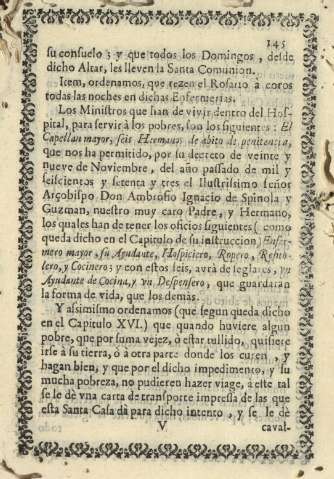 145
su consuelo; y que todos los Domingos, desde
dicho Altar, les lleven la Santa Comunion.
Item, ordenamos, que rezen el Rosario à coros
todas las noches en dichas Enfermerias.
Los Ministros que han de vivir dentro del Hos-
pital, para servir à los pobres, son los siguientes: El
Capellan mayor, seis Hermanos de abito de penitencia,
que nos ha permitido, por su decreto de veinte y
nueve de Noviembre, del año passado de mil y
seiscientos y setenta y tres el Ilustrissimo señor
Arçobispo Don Ambrosio Ignacio de Spinola y
Guzman, nuestro muy caro Padre, y Hermano,
los quales han de tener los oficios siguientes (como
queda dicho en el Capitulo de su instruccion) Enfer-
mero mayor, su Ayudante, Hospiciero, Ropero, Refito-
lero, y Cocinero; y con estos seis, avrà de seglares, vn
Ayudante de Cocina, y vn Despensero, que guardaràn
la forma de vida, que los demàs.
Y assimismo ordenamos (que segun queda dicho
en el Capitulo XVI.) que quando huviere algun
pobre, que por suma vejez, ò estar tullido, quisiere
irse à su tierra, ò à otra parte donde los curen, y
hagan bien, y que por el dicho impedimento, y su
mucha pobreza, no pudieren hazer viage, à este tal
se le dè vna carta de transporte impressa de las que
esta Santa Casa dà para dicho intento, y se le dè
V caval-